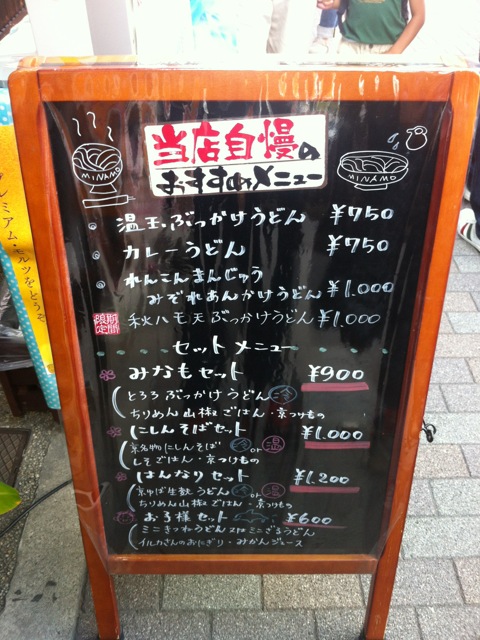 当店自慢の
おすすめメニュー
MINAMO
MINAMO
温玉ぶっかけうどん ¥750
カレーうどん ¥750
れんこんまんじゅう
みぞれあんかけうどん ¥1.000
期間限定
秋ハモ天ぶっかけうどん ¥1.000
セットメニュー
みなもセット ¥900
とろろぶっかけうどん 冷
ちりめん山椒ごはん・京つけもの
にしんそばセット ¥1.000
京名物にしんそば 冷 or 温
しそごはん・京つけもの
はんなりセット ¥1.200
京ゆば生麩うどん 冷 or 温
ちりめん山椒ごはん・京つけもの
お子様セット ¥600
ミニきつねうどん or ミニざるうどん
イルカさんのおにぎり・みかんジュース
プレミアム・モルツをどうぞ